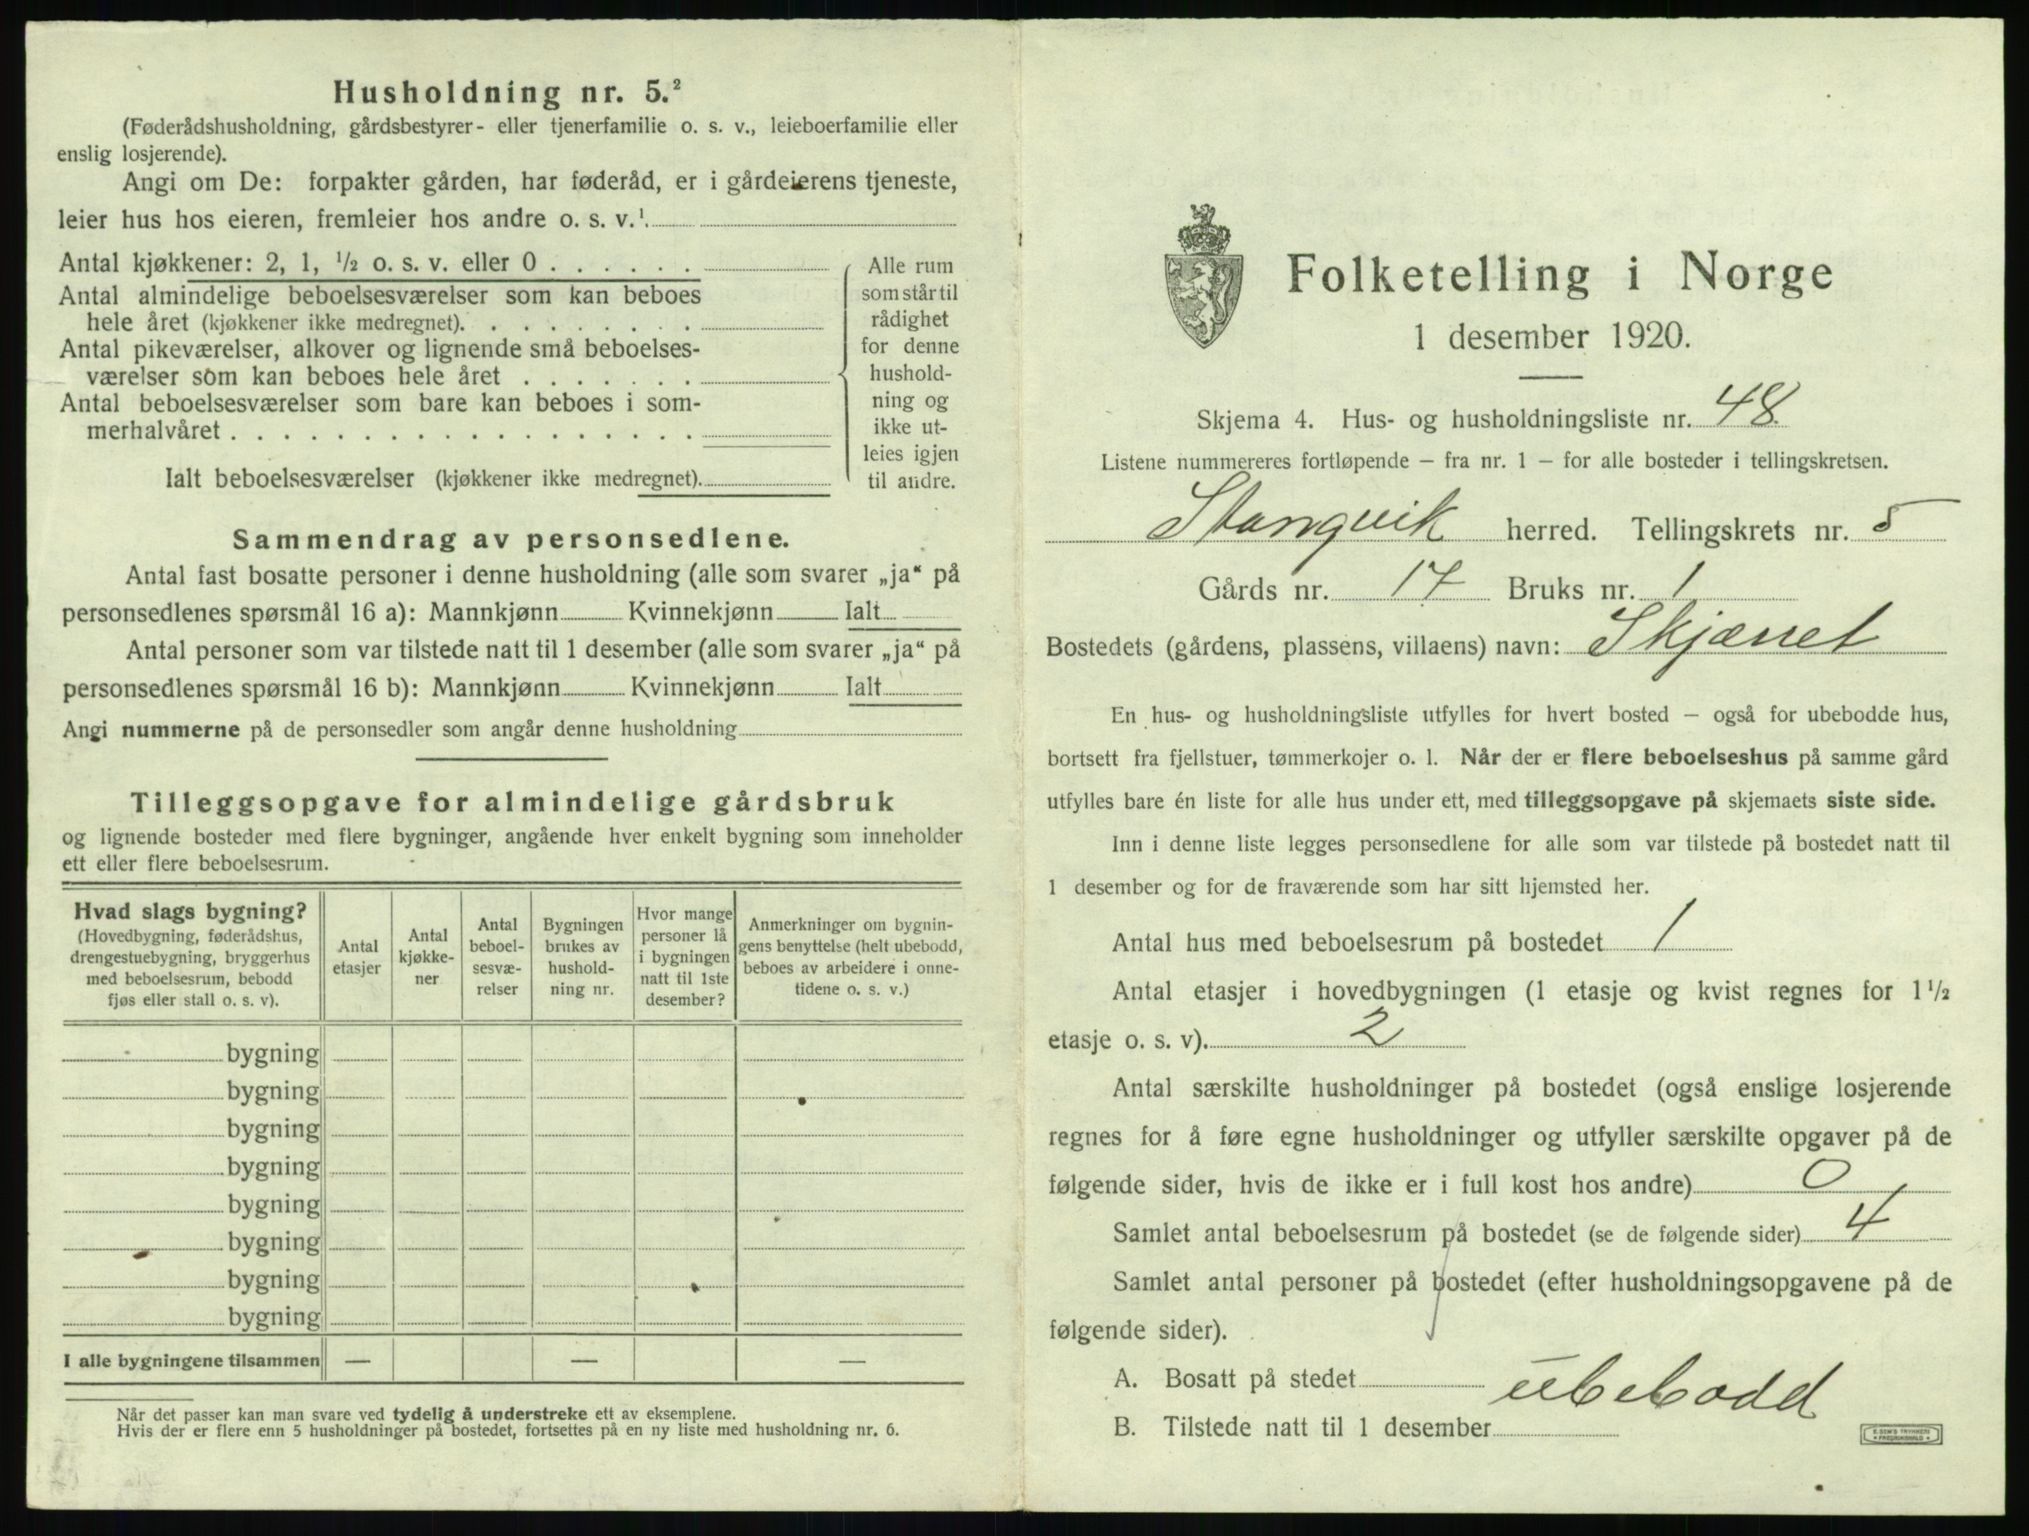 Husholdning nr. 5.²
(Føderådshusholdning, gårdsbestyrer- eller tjenerfamilie o. s. v., leieboerfamilie eller
enslig losjerende).
Angi om De: forpakter gården, har føderåd, er i gårdeierens tjeneste,
leier hus hos eieren, fremleier hos andre o. s. v.¹
Antal kjøkkener: 2, 1, ½ o. s. v. eller 0 . . . . . .
Antal almindelige beboelsesværelser som kan beboes
hele året (kjøkkener ikke medregnet). . . . . . . . .
Antal pikeværelser, alkover og lignende små beboelses-
værelser som kan beboes hele året . . . . . . .
Antal beboelsesværelser som bare kan beboes i som-
merhalvåret . . . . . . . . . . . . . . . . . .
Ialt beboelsesværelser (kjøkkener ikke medregnet).
Alle rum
som står til
rådighet
for denne
hushold-
ning og
ikke ut-
leies igjen
til andre.
Sammendrag av personsedlene.
Antal fast bosatte personer i denne husholdning (alle som svarer „ja“ på
personsedlenes spørsmål 16 a): Mannkjønn Kvinnekjønn Ialt
Antal personer som var tilstede natt til 1 desember (alle som svarer „ja“ på
personsedlenes spørsmål 16 b): Mannkjønn Kvinnekjønn Ialt
Angi nummerne på de personsedler som angår denne husholdning
Tilleggsopgave for almindelige gårdsbruk
og lignende bosteder med flere bygninger, angående hver enkelt bygning som inneholder
ett eller flere beboelsesrum.
Hvad slags bygning?
(Hovedbygning, føderådshus,
drengestuebygning, bryggerhus
med beboelsesrum, bebodd
fjøs eller stall o. s. v).
Antal
etasjer
Antal
kjøkke-
ner
Antal
beboel-
sesvæ-
relser
Bygningen
brukes av
hushold-
ning nr.
Hvor mange
personer lå
i bygningen
natt til 1ste
desember?
Anmerkninger om bygnin-
gens benyttelse (helt ubebodd,
beboes av arbeidere i onne-
tidene o. s. v.)
bygning
bygning
bygning
bygning
bygning
bygning
bygning
bygning
I alle bygningene tilsammen — — —
Når det passer kan man svare ved tydelig å understreke ett av eksemplene.
Hvis der er flere enn 5 husholdninger på bostedet, fortsettes på en ny liste med husholdning nr. 6.
Folketelling i Norge
1 desember 1920.
Skjema 4. Hus- og husholdningsliste nr. 48.
Listene nummereres fortløpende – fra nr. 1 – for alle bosteder i tellingskretsen.
Stangvik herred. Tellingskrets nr. 5
Gårds nr. 17 Bruks nr. 1
Bostedets (gårdens, plassens, villaens) navn: Skjærret
En hus- og husholdningsliste utfylles for hvert bosted – også for ubebodde hus,
bortsett fra fjellstuer, tømmerkojer o. l. Når der er flere beboelseshus på samme gård
utfylles bare én liste for alle hus under ett, med tilleggsopgave på skjemaets siste side.
Inn i denne liste legges personsedlene for alle som var tilstede på bostedet natt til
1 desember og for de fraværende som har sitt hjemsted her.
Antal hus med beboelsesrum på bostedet 1
Antal etasjer i hovedbygningen (1 etasje og kvist regnes for 1½
etasje o. s. v). 2
Antal særskilte husholdninger på bostedet (også enslige losjerende
regnes for å føre egne husholdninger og utfyller særskilte opgaver på de
følgende sider, hvis de ikke er i full kost hos andre) 0
Samlet antal beboelsesrum på bostedet (se de følgende sider) 4
Samlet antal personer på bostedet (efter husholdningsopgavene på de
følgende sider).
A. Bosatt på stedet ubebodd
B. Tilstede natt til 1 desember
E. SEM'S TRYKKERI
FREDRIKSHALD